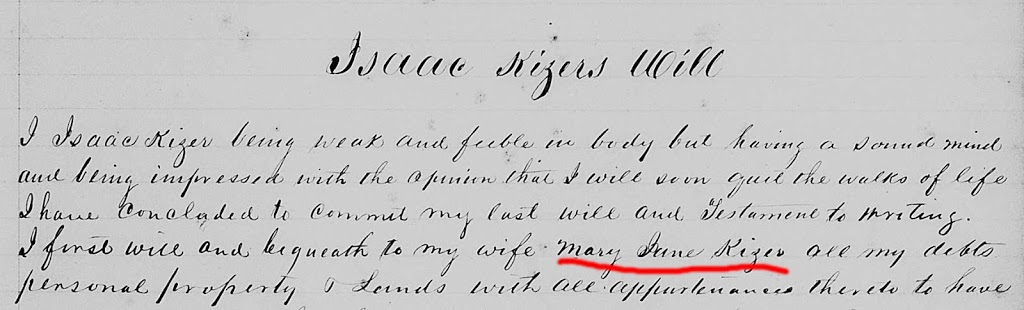 Isaac Kizers Will
I Isaac Kizer being weak and feeble in body but having a sound mind
and being impressed with the opinion that I will soon quit the walks of life
I have concluded to commit my last will and Testament to writing.
I first will and bequeath to my wife Mary Jane Kizer all my debts
personal property & Lands with all appurtenances thereto to have